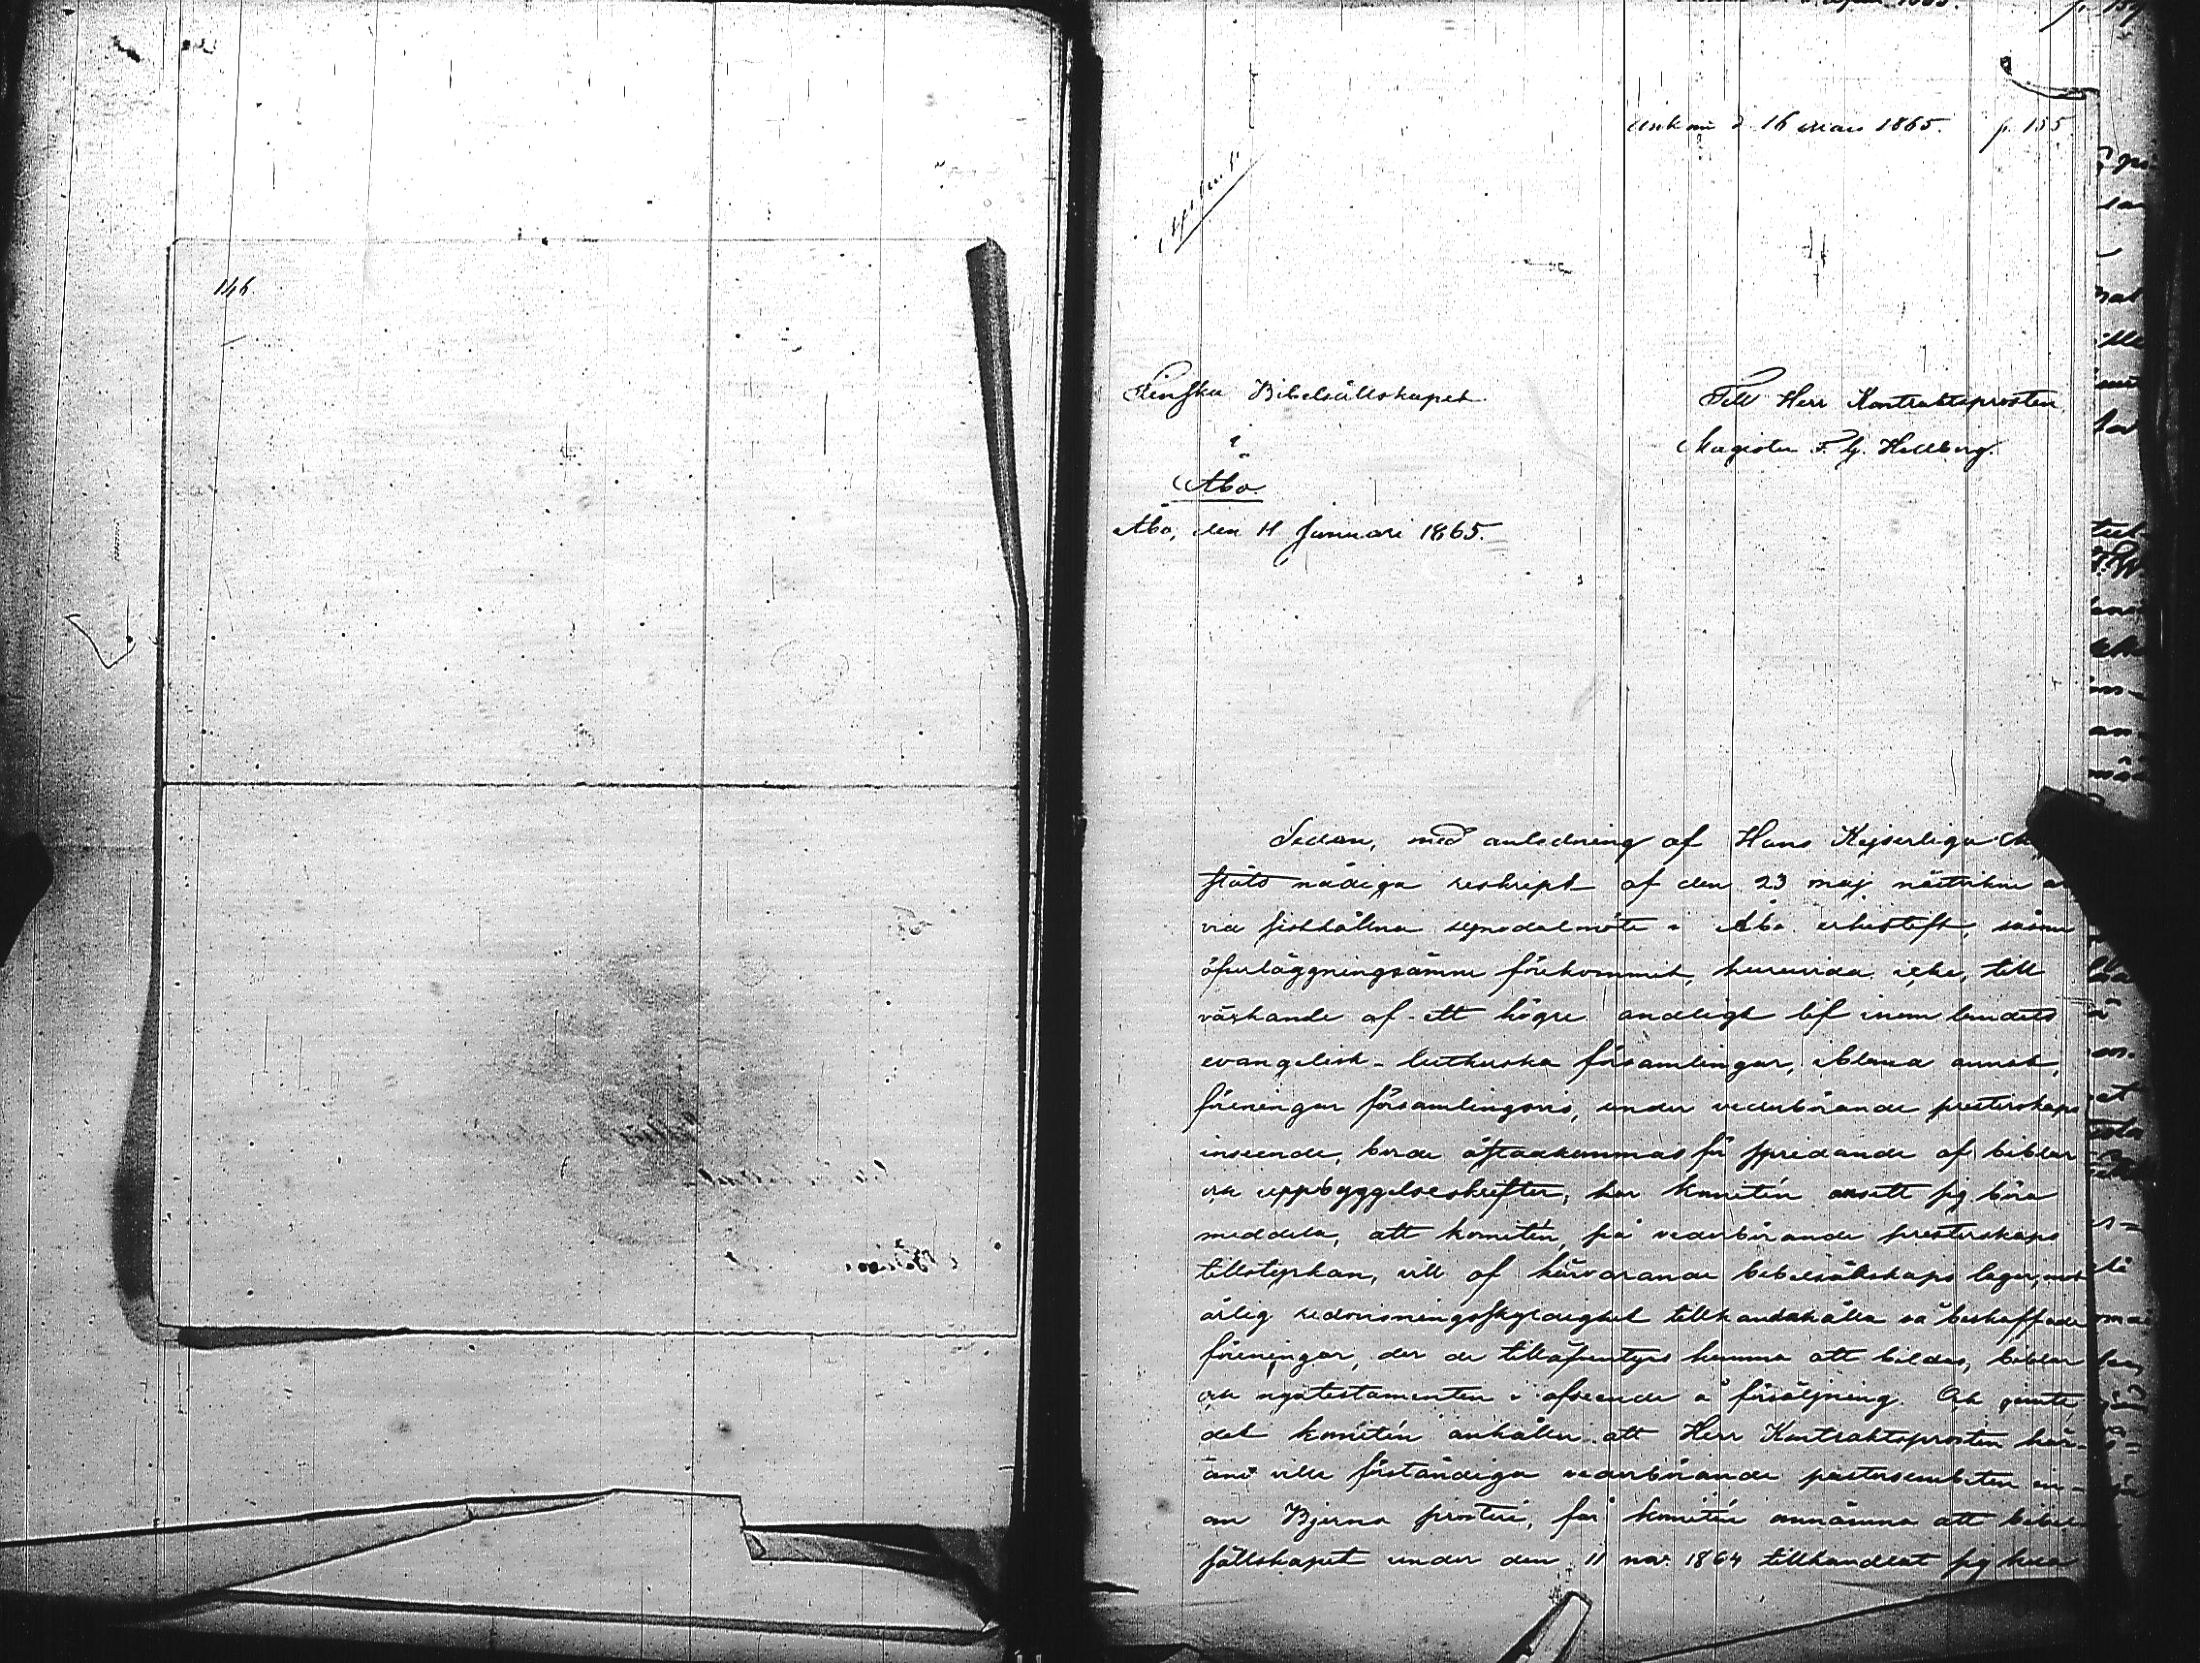 146.
Ank. den 16 mars 1865. p. 155.
Finska Bibelsällskapet
i
Åbo.
Åbo, den 11 Januari 1865.
Till Herr Kontraktsprosten,
Magister F. G. Hellberg.
Sedan, med anledning af Hans Kejserliga
stäts nådiga reskript af den 23 maj nästvikne
vid sisthållna synodalmöte i Åbo erkestift, såsom
öfverläggningsämne förekommit, huruvida icke, till
väckande af ett högre andeligt lif inom landets
evangelisk-lutherska församlingar, ibland annat,
föreningar församlingsvis, under vederbörande presterskaps
inseende, borde åstadkommas för spridande af biblar
och uppbyggelseskrifter, har komitén ansett sig böra
meddela, att komitén, på vederbörande presterskaps
tillstyrkan, vill af härvarande bibelsällskaps lager, mot
årlig redovisningsskyldighet tillhandahålla så beskaffade
föreningar, der de tilläfventyrs komma att bildas, biblar
och nya testamenten i afseende å försäljning. Och jemte
det komitén anhåller att Herr Kontraktsprosten här-
om ville förständiga vederbörande pastorsembeten in-
om Bjerno prosteri, får komitén annämna att bibel
sällskapet under den 11 nov. 1864 tillhandlat sig hela